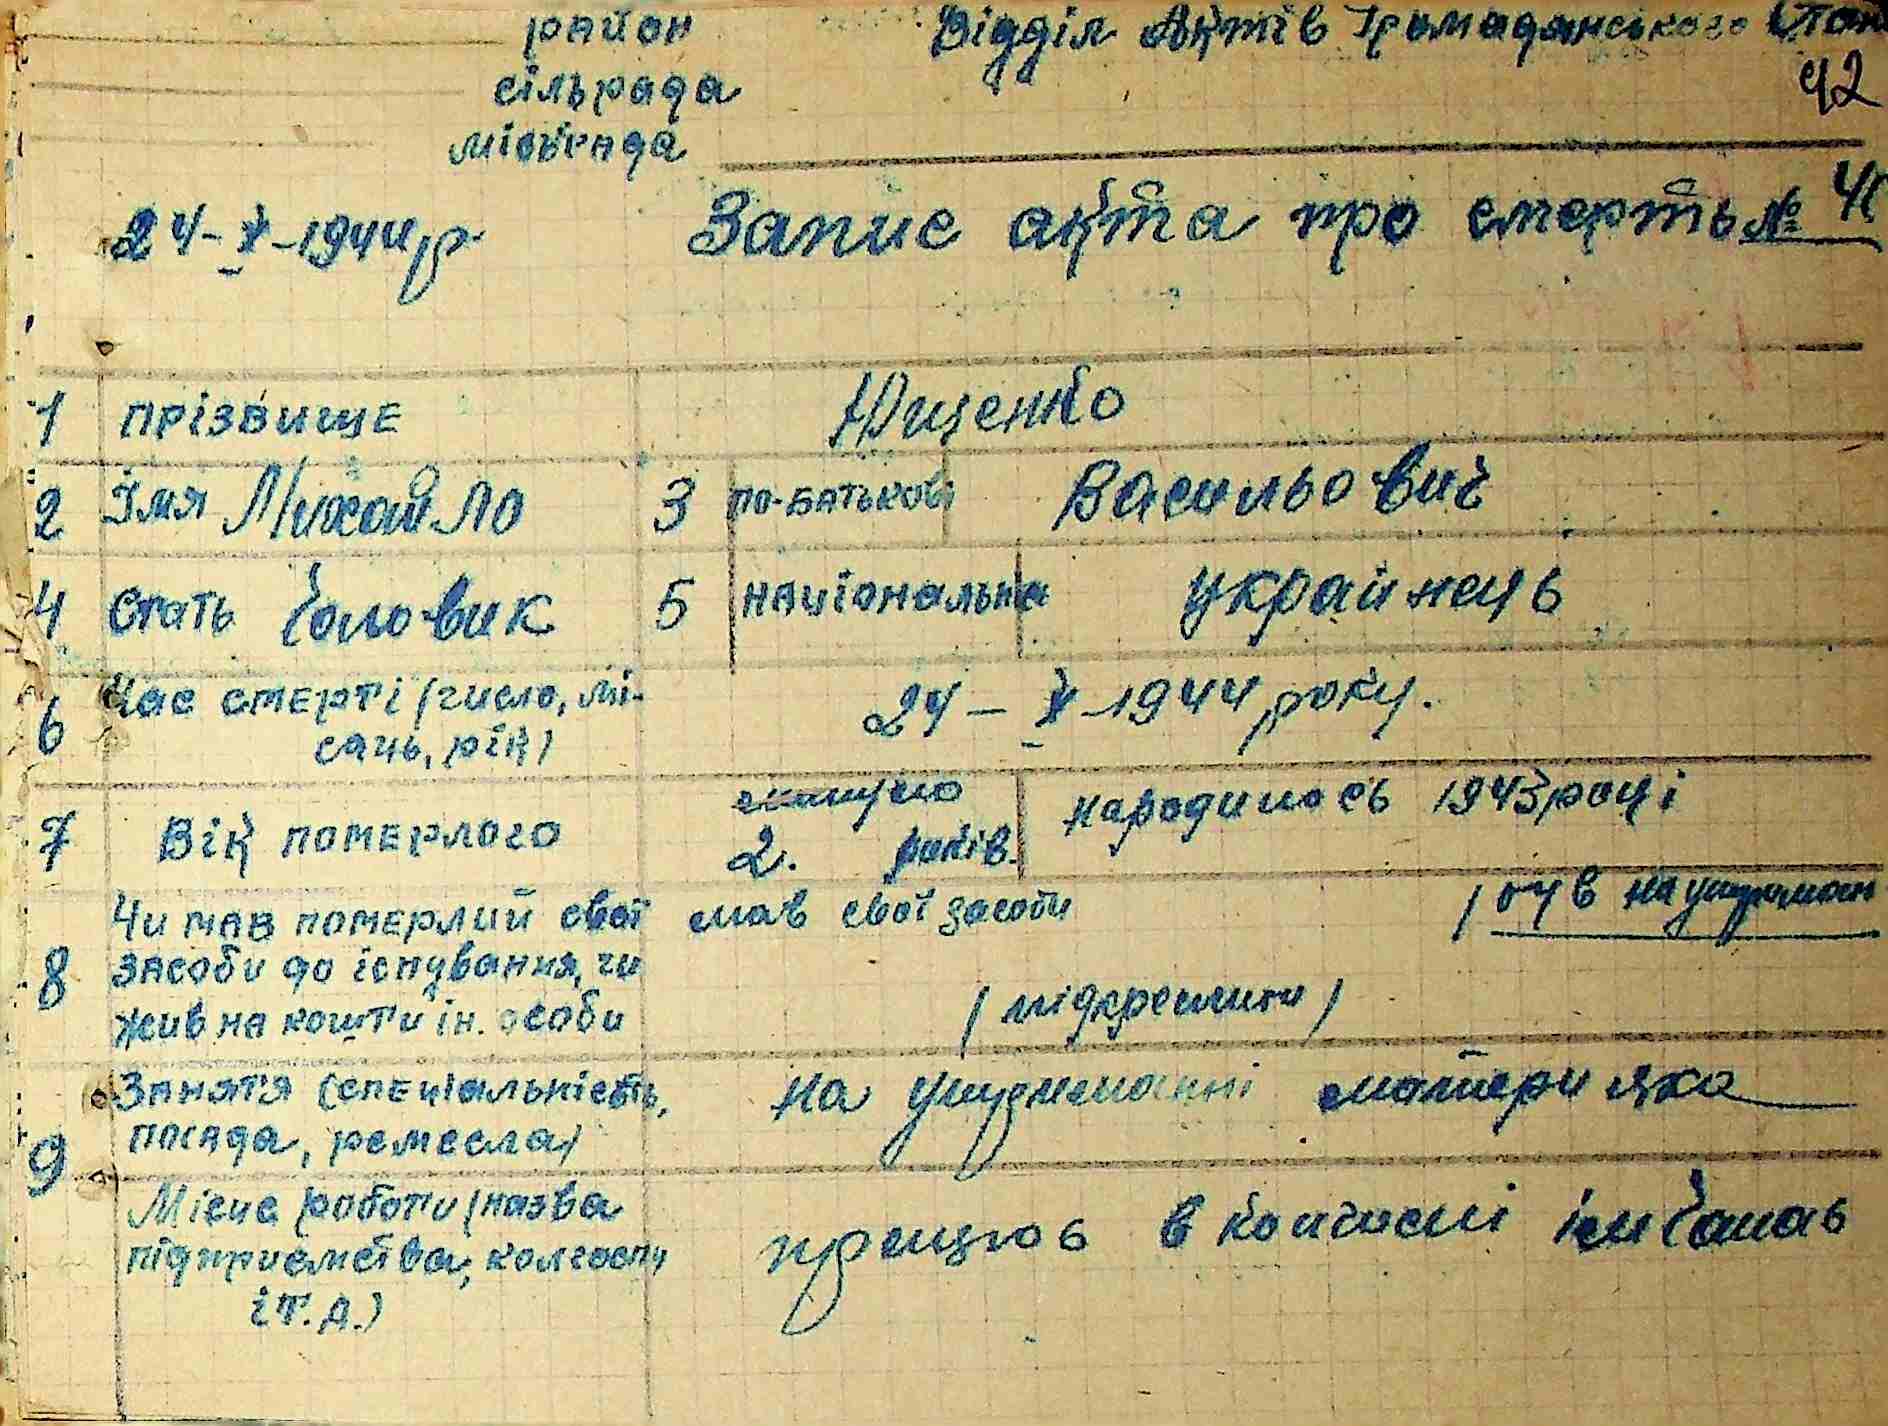 район Відділ Актів Громадянського Стан
сільрада 42
міськрада
24-V-1944 р. Запис акта про смерть №
1 прізвище Ющенко
2 Імя Михайло 3 по-батькові Васильович
4 Стать Чоловик 5 національна українець
6 Час смерті (число, мі-
сяць, рік) 24-V-1944 року.
7 Вік померлого 2. років. народилось 1943 році
8 Чи мав померлий свої мав свої засоби був на утриман
засоби до існування, чи
жив на кошти ін. особи (підкреслити)
9 Занятя (спеціальність, на утриманні матери яка
посада, ремесла)
Місце роботи (назва працює в колгоспі ім Чапає
підприємства, колгоспу
і т. д.)